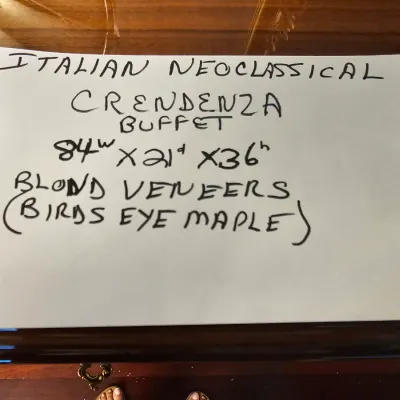 ITALIAN NEOCLASSICAL
CRENDENZA
BUFFET
84w X 21d X 36h
BLOND VENEERS
(BIRDS EYE MAPLE)